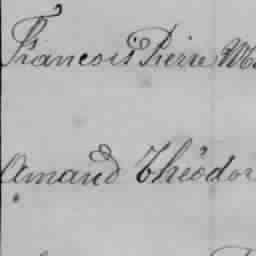 Francois Pierre M
Amand Théodor